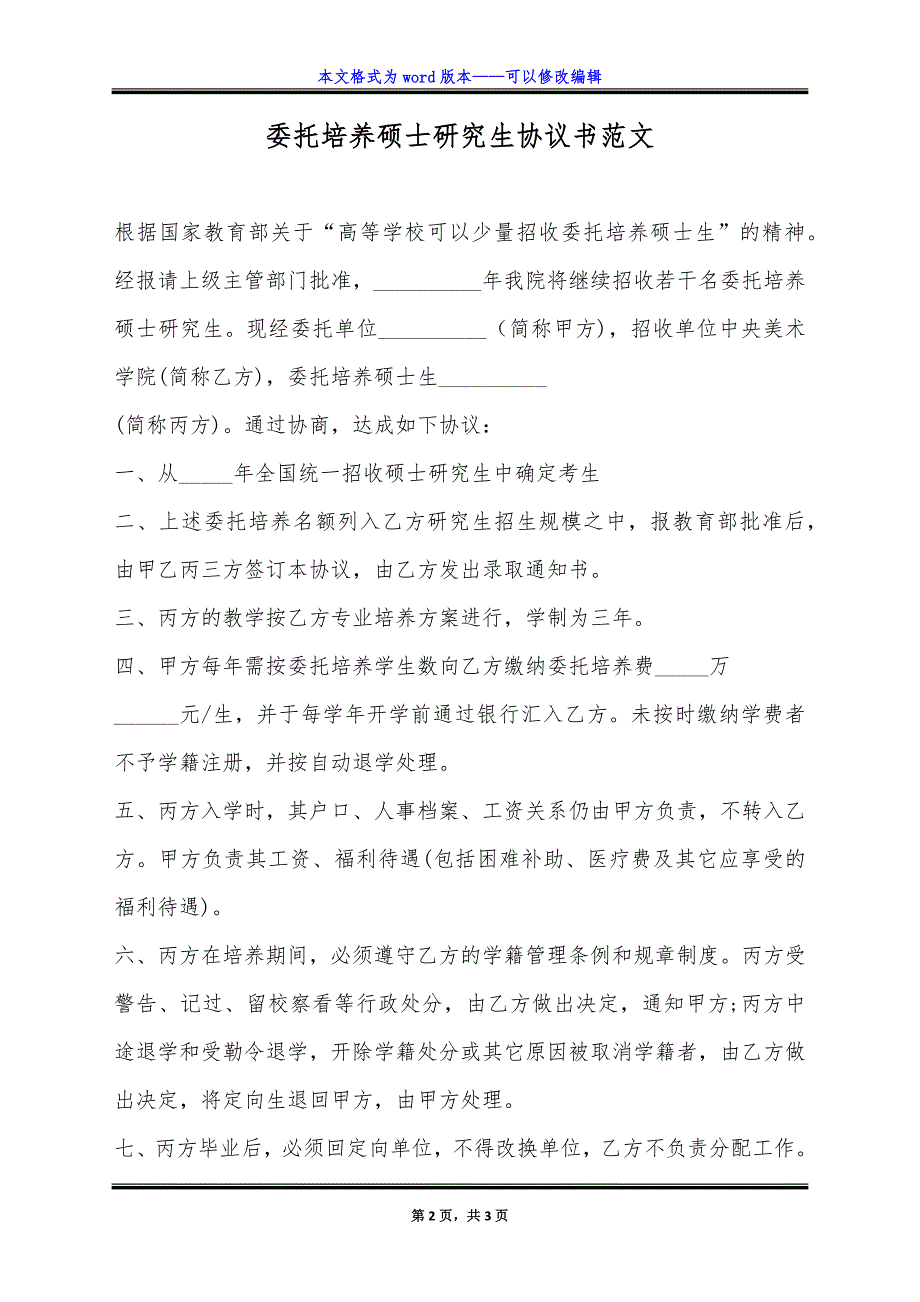 本文格式为 word 版本——可以修改编辑
委托培养硕士研究生协议书范文
根据国家教育部关于“高等学校可以少量招收委托培养硕士生”的精神。
经报请上级主管部门批准，__________年我院将继续招收若干名委托培养
硕士研究生。现经委托单位__________（简称甲方)，招收单位中央美术
学院(简称乙方)，委托培养硕士生__________
(简称丙方)。通过协商，达成如下协议：
一、从_____年全国统一招收硕士研究生中确定考生
二、上述委托培养名额列入乙方研究生招生规模之中，报教育部批准后，
由甲乙丙三方签订本协议，由乙方发出录取通知书。
三、丙方的教学按乙方专业培养方案进行，学制为三年。
四、甲方每年需按委托培养学生数向乙方缴纳委托培养费_____万
______元/生，并于每学年开学前通过银行汇入乙方。未按时缴纳学费者
不予学籍注册，并按自动退学处理。
五、丙方入学时，其户口、人事档案、工资关系仍由甲方负责，不转入乙
方。甲方负责其工资、福利待遇(包括困难补助、医疗费及其它应享受的
福利待遇)。
六、丙方在培养期间，必须遵守乙方的学籍管理条例和规章制度。丙方受
警告、记过、留校察看等行政处分，由乙方做出决定，通知甲方;丙方中
途退学和受勒令退学，开除学籍处分或其它原因被取消学籍者，由乙方做
出决定，将定向生退回甲方，由甲方处理。
七、丙方毕业后，必须回定向单位，不得改换单位，乙方不负责分配工作。
第 2 页，共 3 页